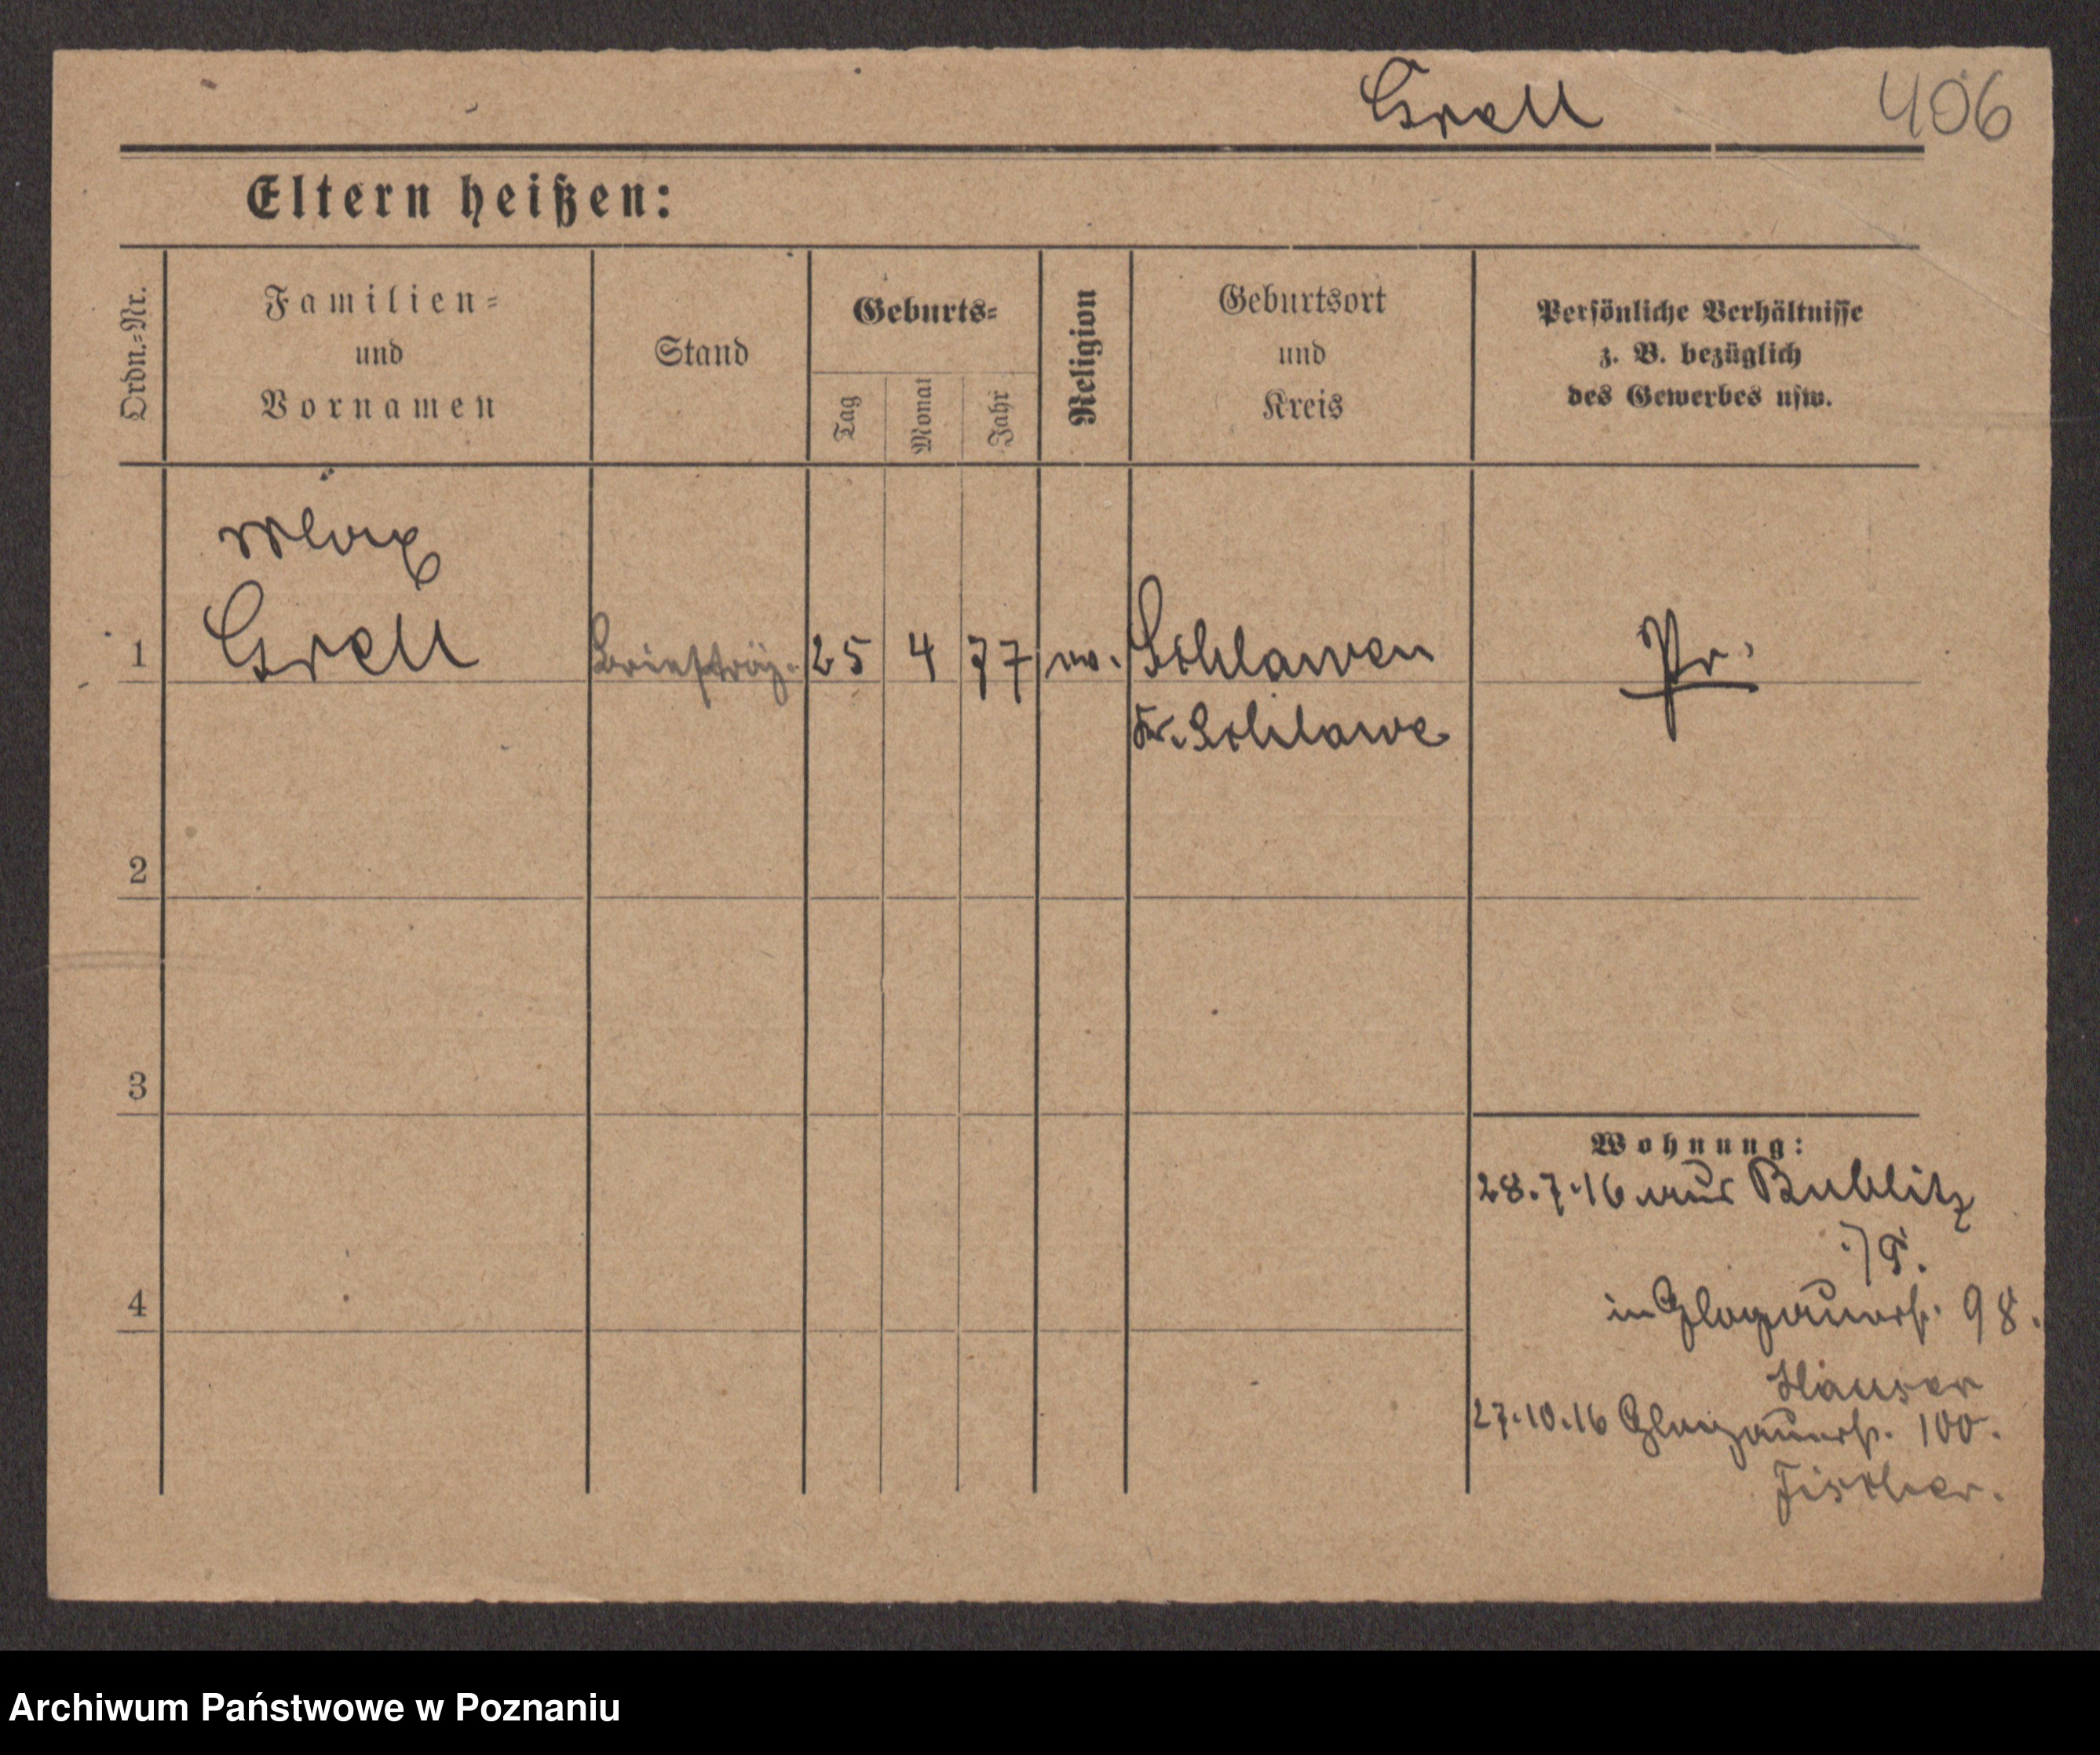 Grell 406
Eltern heißen:
Ordn.-Nr.
Familien-
und
Vornamen
Stand
Geburts-
Tag
Monat
Jahr
Religion
Geburtsort
und
Kreis
Persönliche Verhältnisse
z. B. bezüglich
des Gewerbes usw.
Max
1 Grell Briefträg. 25 4 77 ev. Schlawen Pr.
Kr. Schlawe
2
3
4
Wohnung:
28.7.16 aus Bublitz
i/P.
in Glogauerst. 98.
Hauser
27.10.16 Glogauerst. 100.
Fischer.
Archiwum Państwowe w Poznaniu